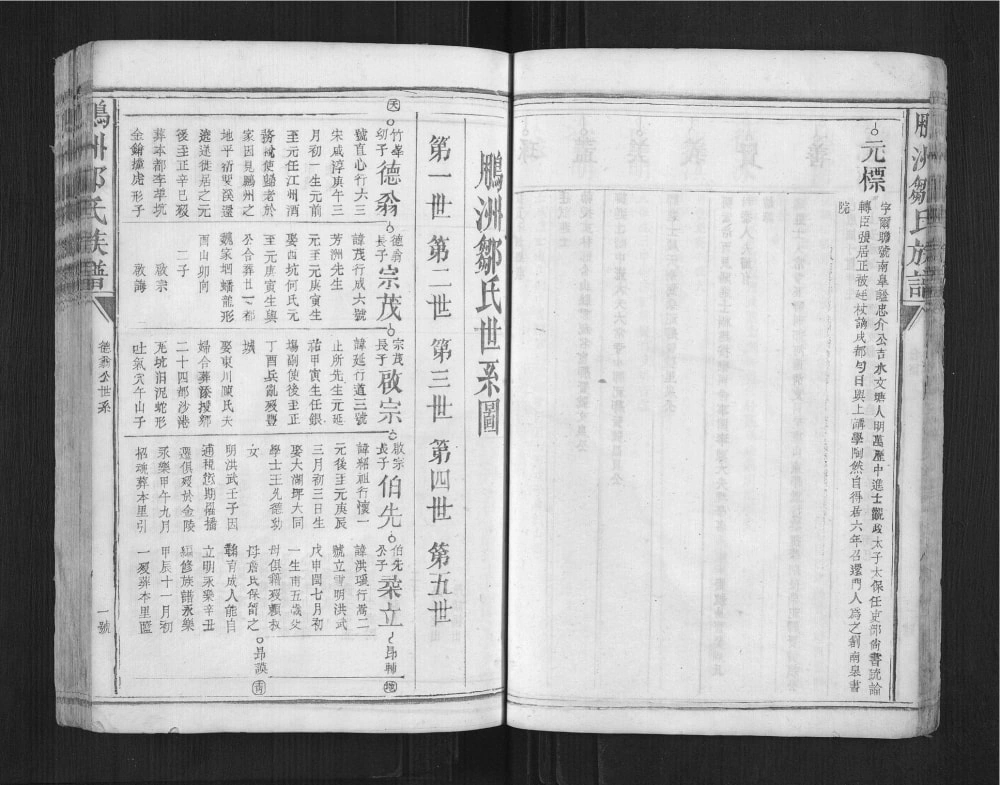 鵬洲鄒氏族譜
元標
字爾聸號南臯諡忠介公吉水文塘人明萬歷中進士觀政太子太保任吏部尚書疏論
轉臣張居正被廷杖謫戍都勻日與上講學陶然自得居六年召還門人為之創南臯書
院
鵬洲鄒氏世系圖
第一世
第二世
第三世
第四世
第五世
天
竹峯
幼子
德翁
德翁
長子
宗茂
宗茂
長子
啟宗
啟宗
長子
伯先
伯先
公子
立
昂輔
號直心行六三
宋咸淳庚午三
月初一生元前
至元任江州酒
務使歸老於
家因見鵬州之
地平
遂徙居之元
後至正辛巳歿
葬本都李莘坑
金鎗撞虎形子
諱茂行成六號
芳洲先生
元至元庚寅生
娶四坑何氏元
至元庚寅生與
公合葬廿一都
魏家垇蟠龍形
酉山卯向
二子
啟宗
啟海
諱延行道三號
止所先生元延
祐甲寅生任銀
場副使後至正
丁酉兵亂歿豐
城
娶東川陳氏夫
婦合葬
二十四都沙港
坑泥蛇形
吐氣穴午山子
諱紹祖行懷一
元後至元庚辰
三月初三日生
娶大湖坪大同
學士王允德幼
女
明洪武壬子因
通稅愆期
選俱歿於金陵
永樂甲午九月
招魂葬本里引
諱洪璦行嵩二
號立雪明洪武
戊申閏七月初
一生甫五歲父
母俱籍歿賴叔
母詹氏保留之
育成人能自
立明永樂辛丑
編修族譜永樂
甲辰十一月初
一歿葬本里
昂謨
青
鵬洲鄒氏族譜
德翁公世系
一號